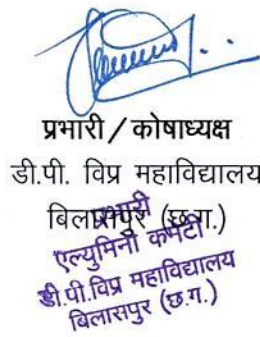 प्रभारी / कोषाध्यक्ष
डी.पी. विप्र महाविद्यालय
बिलासपुर (छ.ग.)
प्रभारी
एल्युमिनी कमेटी
डी.पी.विप्र महाविद्यालय
बिलासपुर (छ.ग.)